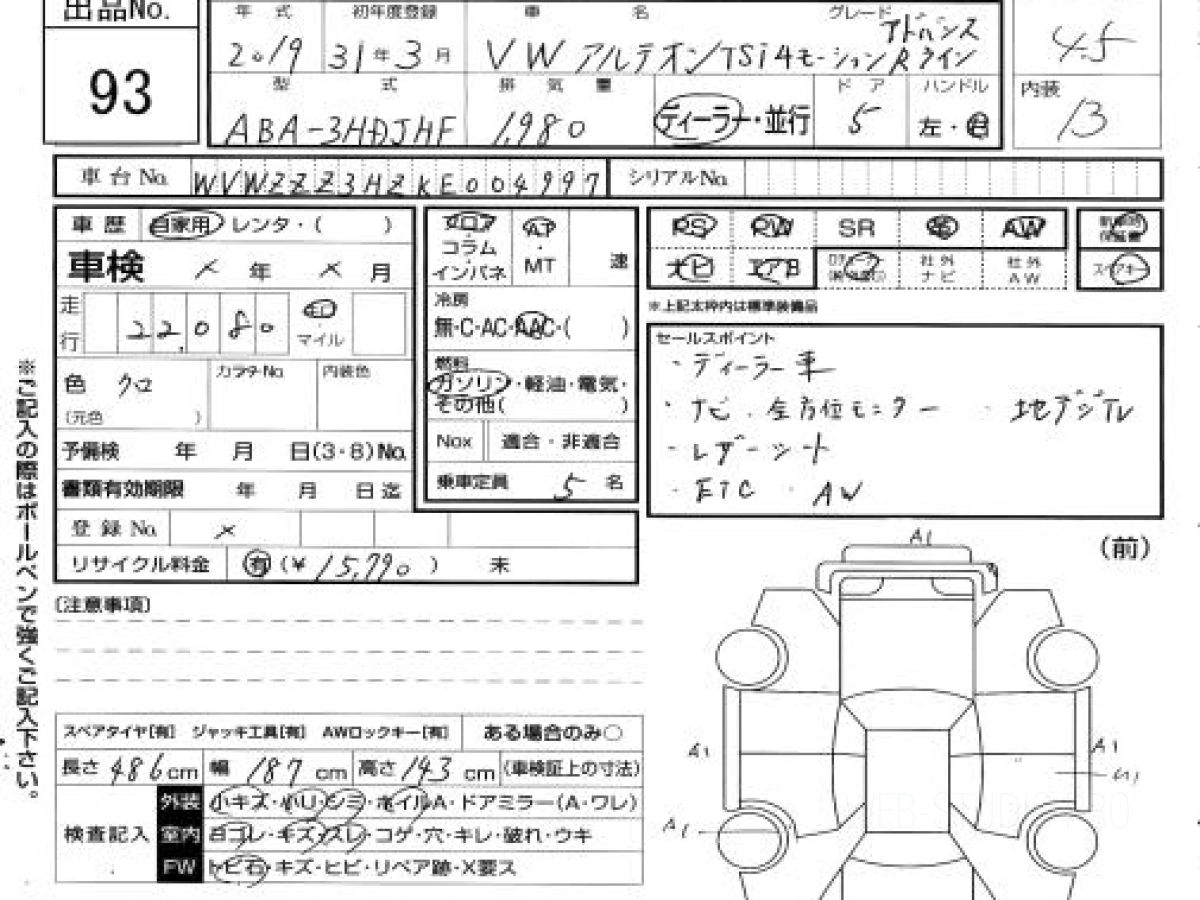 出品No.
93
年 式 初年度登録 車 名 グレード
2019 31年3月 VW アルテオン TSi 4モーション Rライン アドバンス
4.5
型 式 排 気 量 ドア ハンドル
ABA-3HDJHF 1,980 ディーラー・並行 5 左・右
内装
B
車台No. WVWZZZ3HZKE004997 シリアルNo.
車歴 自家用 レンタ・( )
車検 × 年 × 月
走行 22,080 km マイル
色 クロ カラーNo. 内装色
(元色 )
予備検 年 月 日(3・8)No.
書類有効期限 年 月 日迄
登録No. ×
リサイクル料金 有(¥15,790) 未
フロア
コラム
インパネ
AT
・
MT
速
冷房
無・C・AC・AAC・( )
燃料
ガソリン・軽油・電気・
その他( )
Nox 適合・非適合
乗車定員 5 名
PS PW SR 革 AW
ナビ エアB 社外ナビ 社外AW
新車時保証書
スペアキー
※上記太枠内は標準装備品
セールスポイント
・ディーラー車
・ナビ・全方位モニター ・地デジTV
・レザーシート
・ETC ・AW
※ご記入の際はボールペンで強くご記入下さい。
(注意事項)
スペアタイヤ[有] ジャッキ工具[有] AWロックキー[有] ある場合のみ○
長さ 486cm 幅 187cm 高さ 143cm (車検証上の寸法)
検査記入
外装 小キズ・小凹・シミ・ホイルA・ドアミラー(A・ワレ)
室内 ヨゴレ・キズ・スレ・コゲ・穴・キレ・破れ・ウキ
FW トビ石・キズ・ヒビ・リペア跡・X要ス
(前)
A1
A1
A1
U1
A1